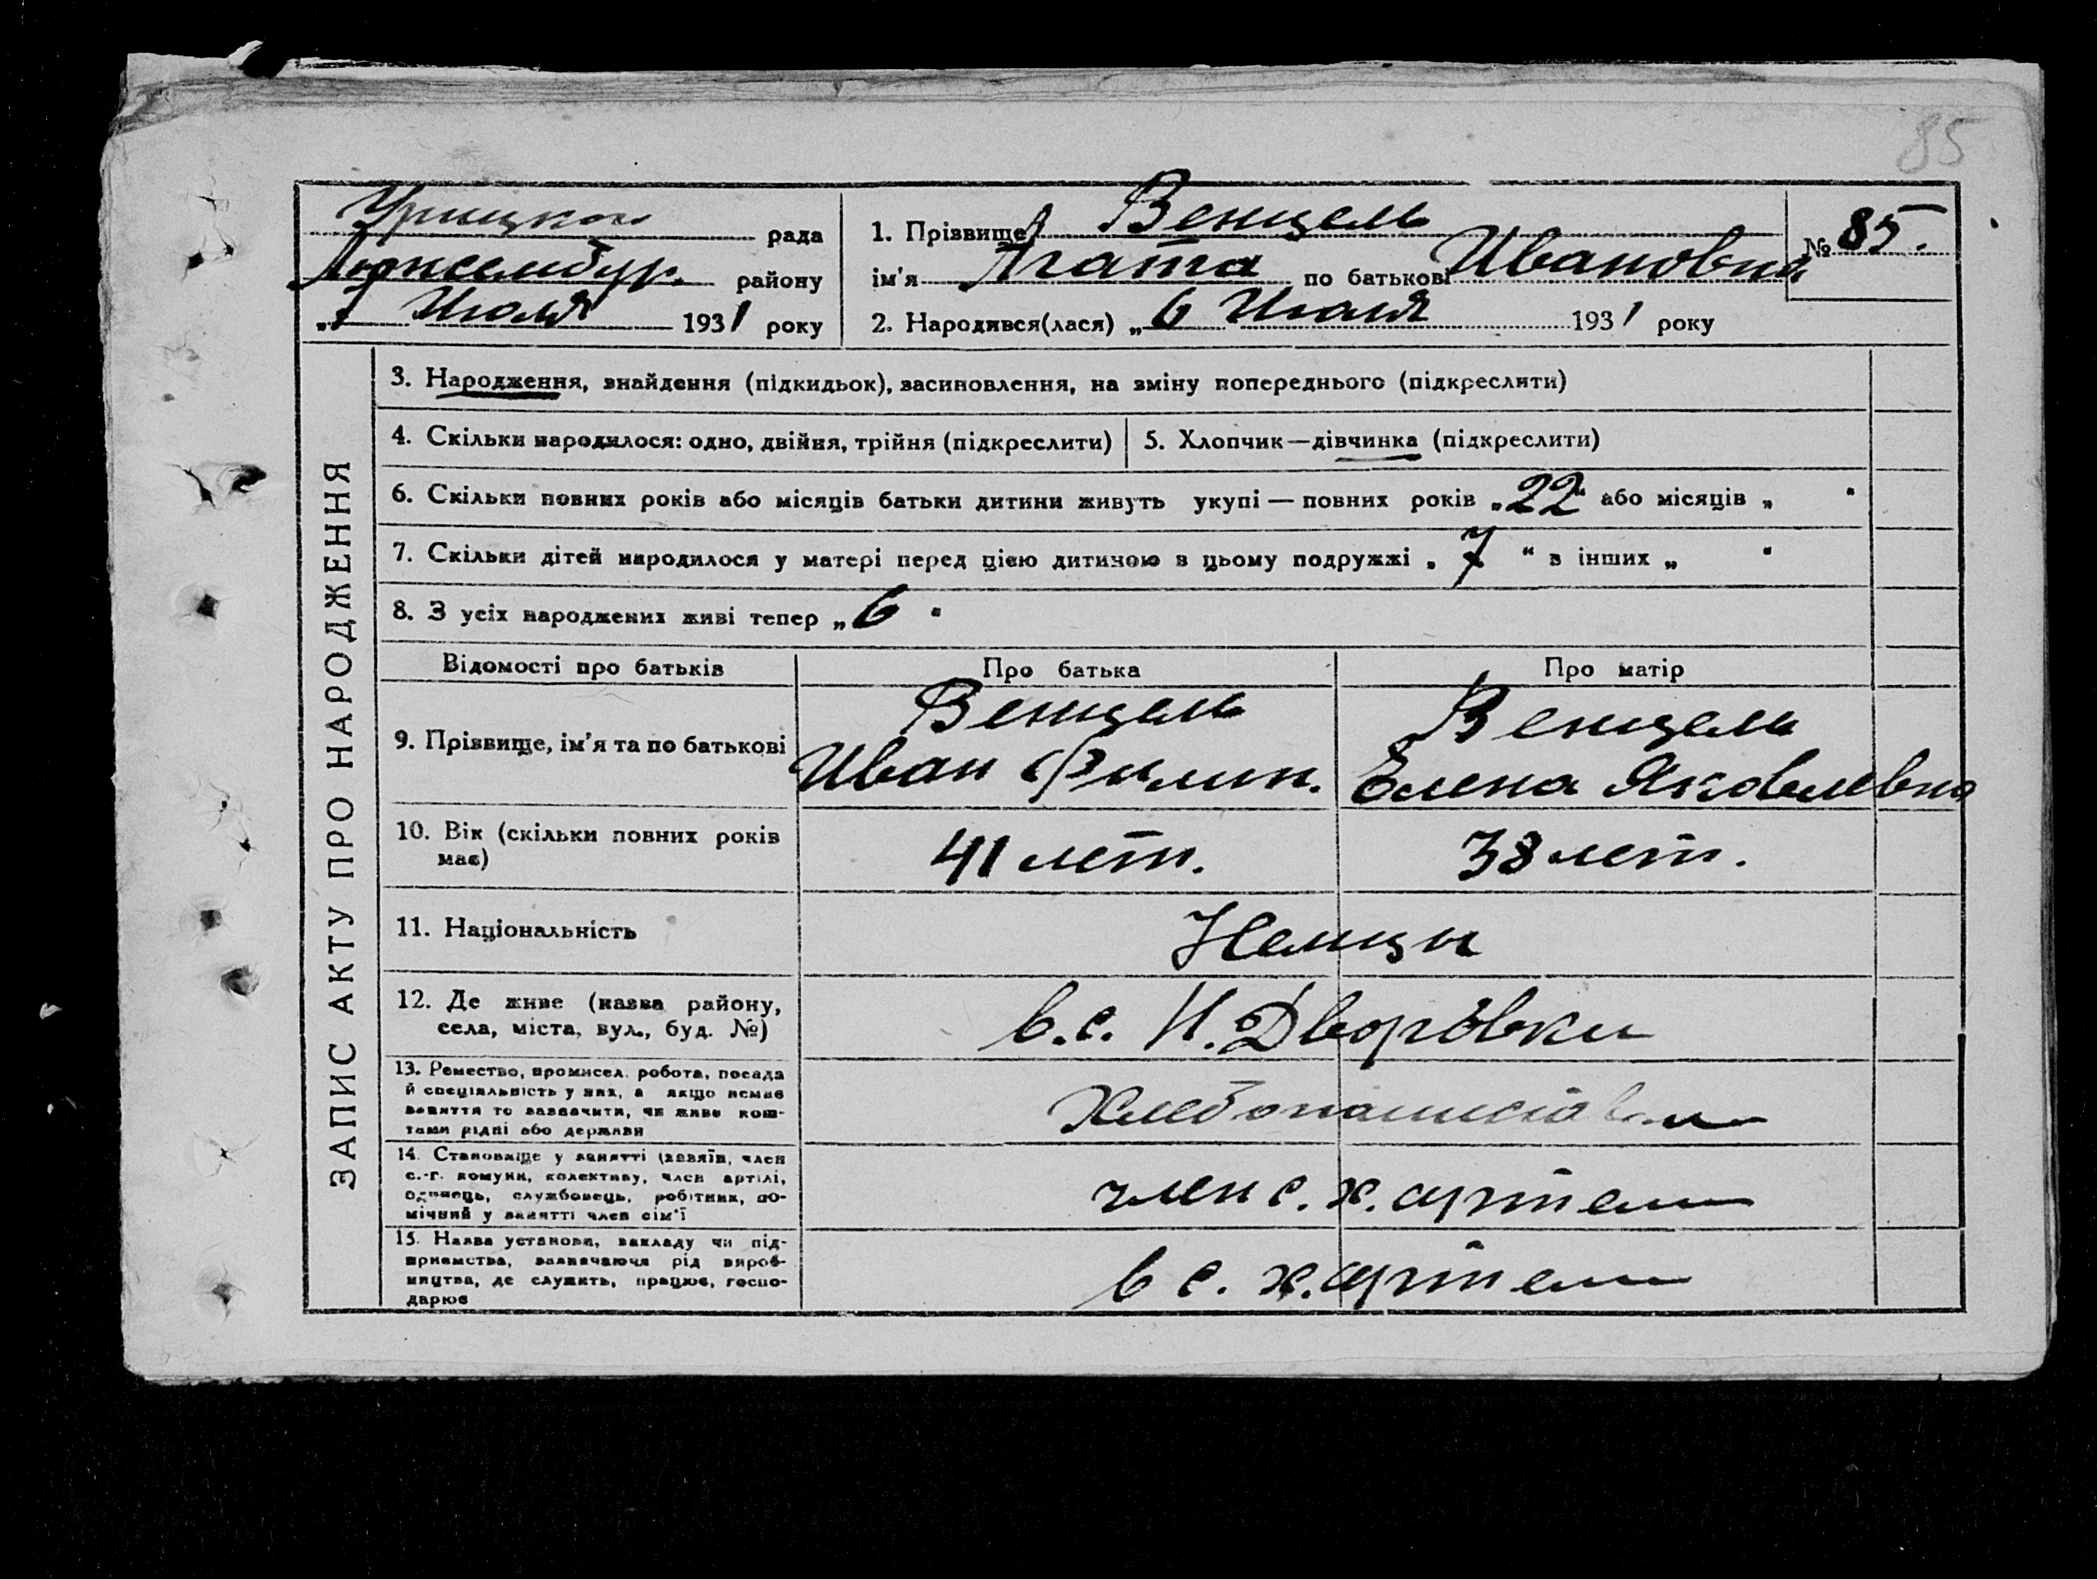 85
Урицкого рада
Люксембур. району
„7 Июля 1931 року
1. Прізвище Венцель
ім'я Агата по батькові Ивановна
№ 85.
2. Народився(лася) „6 Июля 1931 року
ЗАПИС АКТУ ПРО НАРОДЖЕННЯ
3. Народження, знайдення (підкидьок), засиновлення, на зміну попереднього (підкреслити)
4. Скільки народилося: одно, двійня, трійня (підкреслити)
5. Хлопчик—дівчинка (підкреслити)
6. Скільки повних років або місяців батьки дитини живуть укупі — повних років „22“ або місяців „ “
7. Скільки дітей народилося у матері перед цією дитиною в цьому подружжі „7“ з інших „ “
8. З усіх народжених живі тепер „6“
Відомості про батьків
Про батька
Про матір
9. Прізвище, ім'я та по батькові
Венцель
Иван Филип.
Венцель
Елена Яковлевна
10. Вік (скільки повних років
має)
41 лет.
38 лет.
11. Національність
Немцы
12. Де живе (назва району,
села, міста, вул., буд. №)
в.с. Н. Дворовки
13. Ремество, промисел. робота, посада
й спеціяльність у них, а якщо немає
заняття то зазначити, чи живе кош-
тами рідні або держави
14. Становище у занятті (хазяїн, член
с.-г. комуни, колективу, член артілі,
одинець, службовець, робітник, по-
мічний у занятті член сім'ї
член с. х. артели
15. Назва установи, закладу чи під-
приємства, зазначаючи рід вироб-
ництва, де служить, працює, госпо-
дарює
в с. х. артели